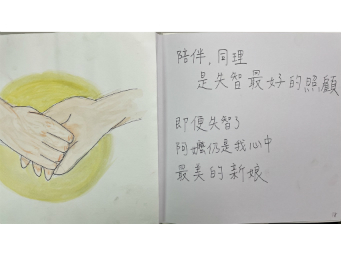 陪伴,同理
是失智最好的照顧
即便失智了
阿嬤仍是我心中
最美的新娘